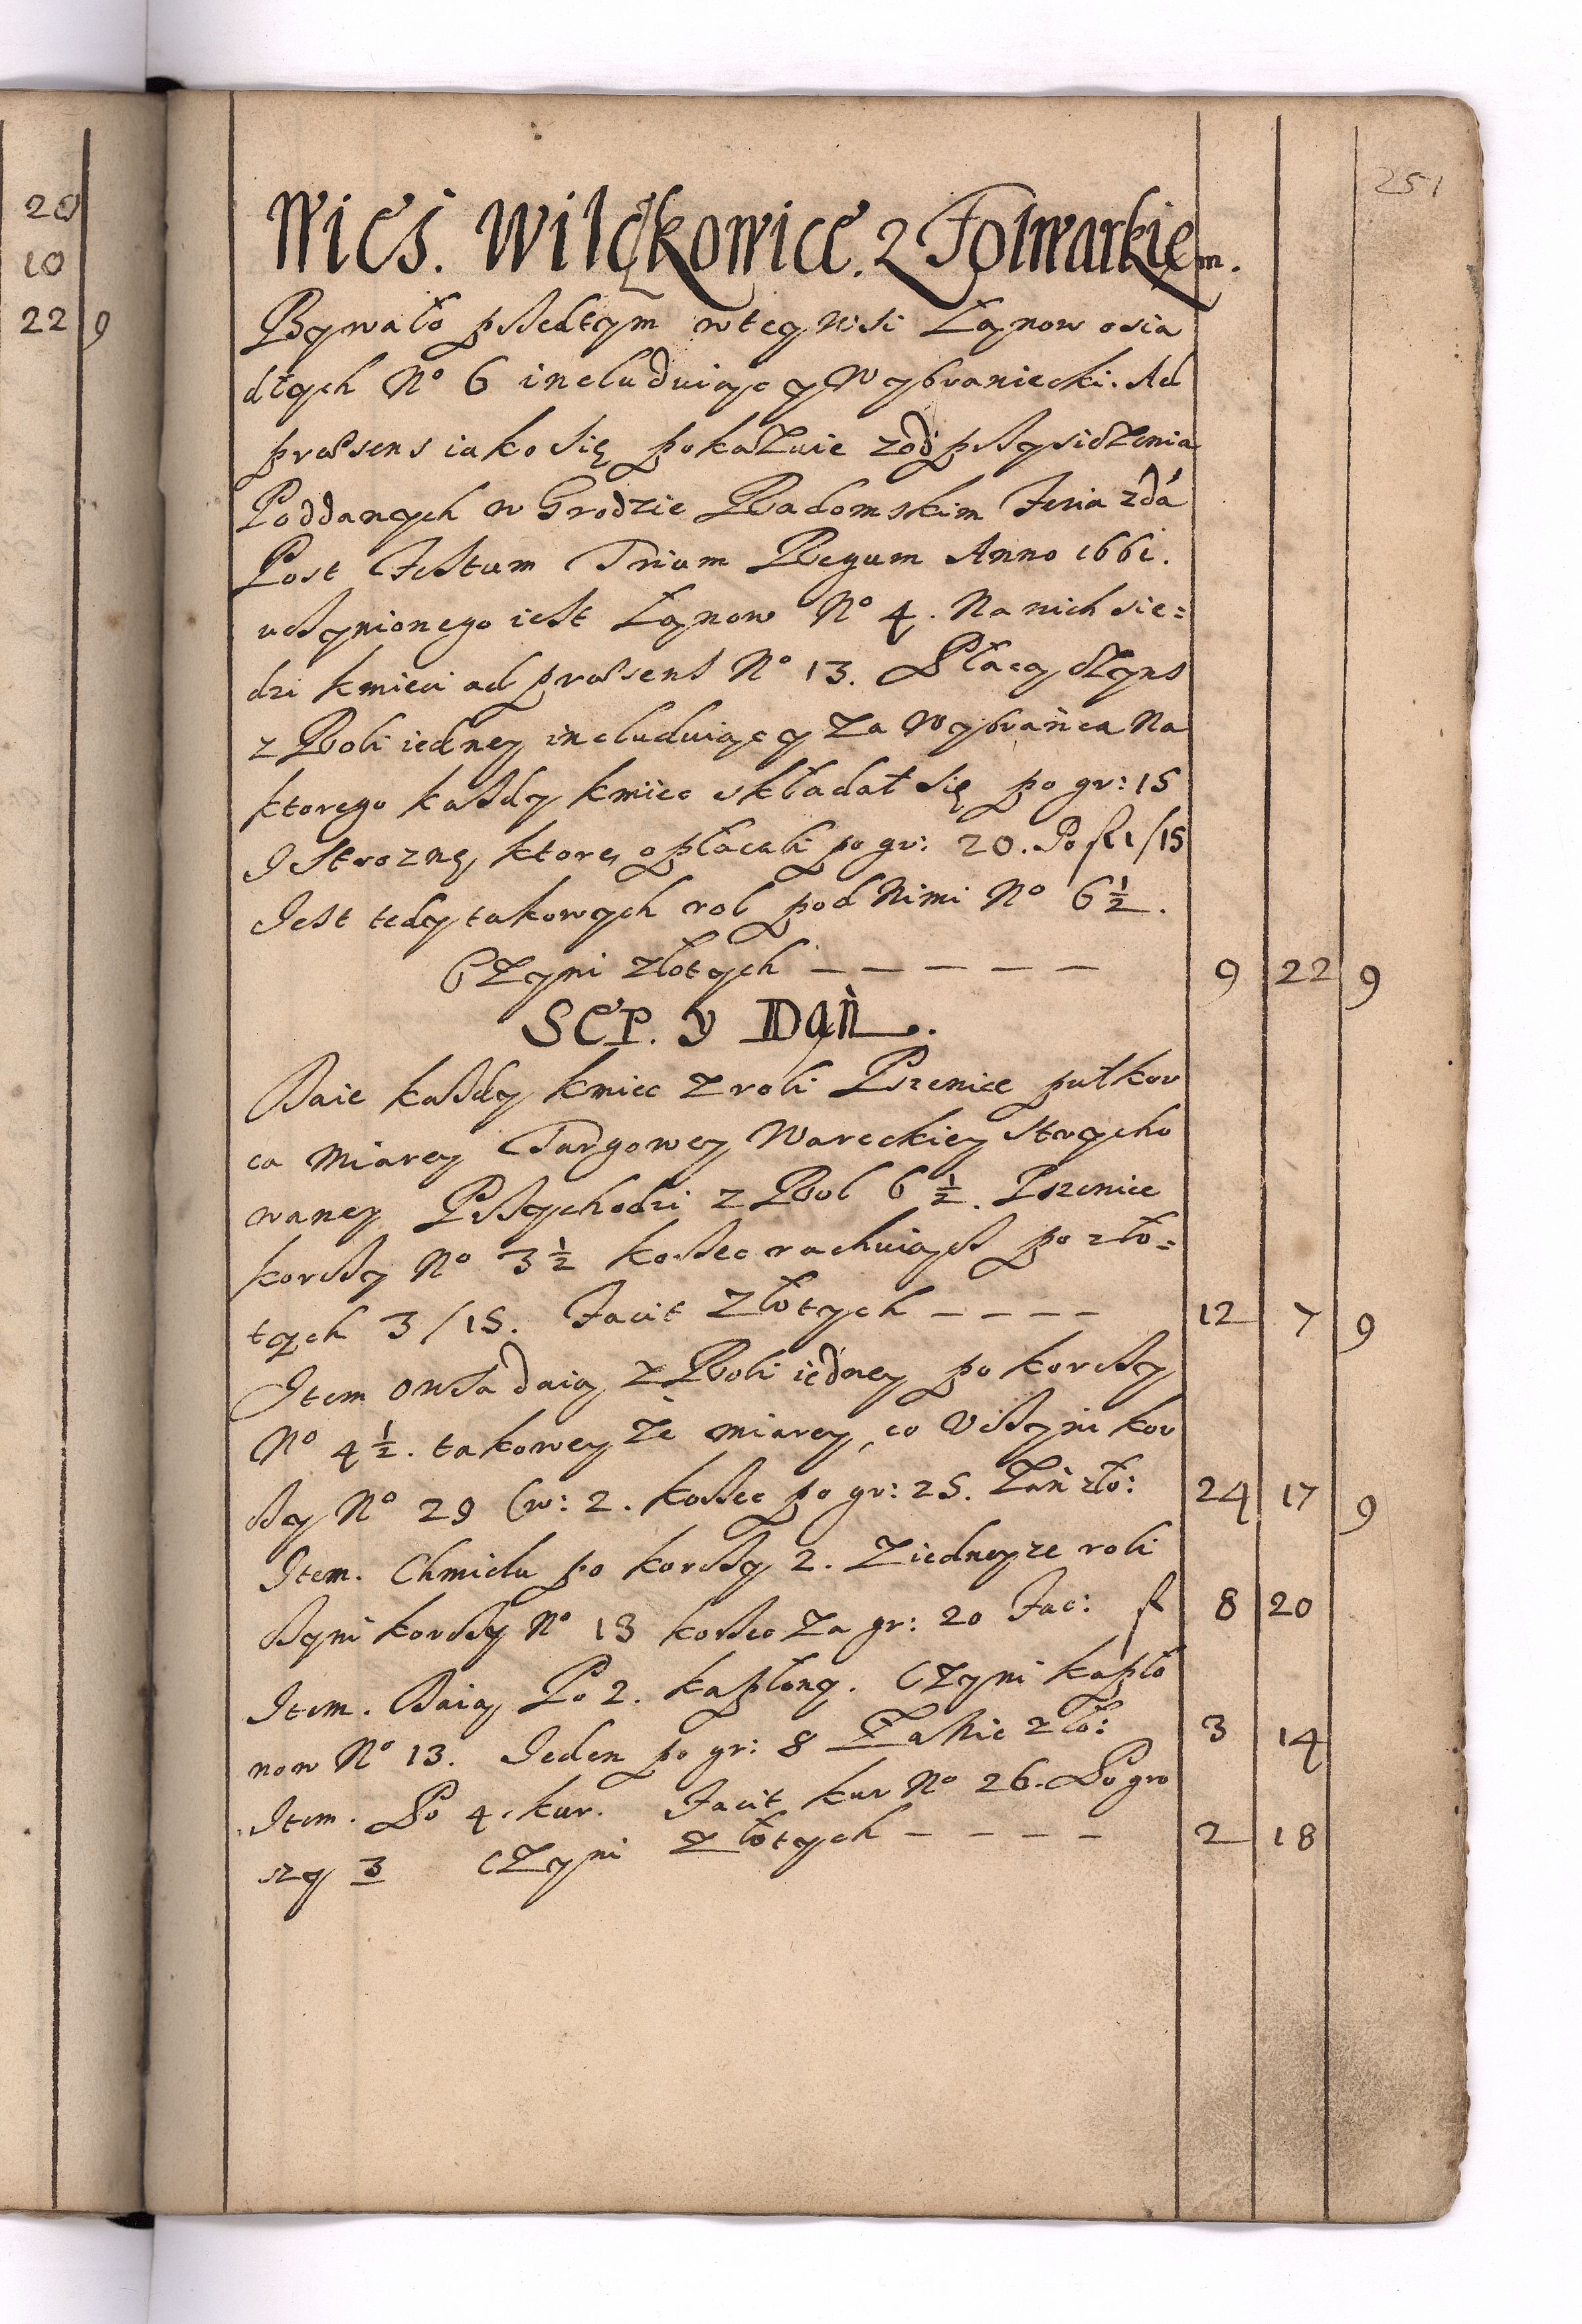 251
20
10
22 9
Wieś. Wilczkowice. z Folwarkiem.
Bywało psedtym w tey Wsi Łanow osia
dłych No 6 includuiąc y Wybraniecki. Ad
præsens iako się pokazuie z odprzysiężenia
Poddanych w Grodzie Radomskim Feria 2da
Post Festum Trium Regum Anno 1661.
uczynionego iest Łanow No 4. Na nich sie=
dzi kmieci ad præsens No 13. Płacą Czyns
z Roli iedney includuiąc y za Wybrańca Na
ktorego kaszdy kmiec składał się po gr: 15
I Stroznę, ktorę opłacali po gr: 20. Po fl 1/15
Iest tedy takowych rol pod Nimi No 6 ½.
Czyni złotych _ _ _ _ _ 9 22 9
SEP. y DAŃ.
Daie kaszdy kmiec z roli Pszenice pułkor
ca Miary Targowey Wareckiey Strycho
waney Przychodzi z Rol 6 ½. Pszenice
korcy No 3 ½ korzec rachuiącz po zło=
tych 3/15. Facit Złotych _ _ _ _ 12 7 9
Item Owsa daią z Roli iedney po korcy
No 4 ½. takowey że miary, co Uczyni kor
cy No 29 Cw: 2. korzec po gr: 25. Zań zło: 24 17 9
Item. Chmielu po korcy 2. Z iedneyze roli
czyni korcy No 13 korzec za gr: 20 Fac: fl 8 20
Item. Daią Po 2. kapłony. Czyni kapło
now No 13. Ieden po gr: 8 Takie zło: 3 14
Item. Po 4. kur. Facit kur No 26. Po gro
szy 3 Czyni Złotych _ _ _ _ 2 18